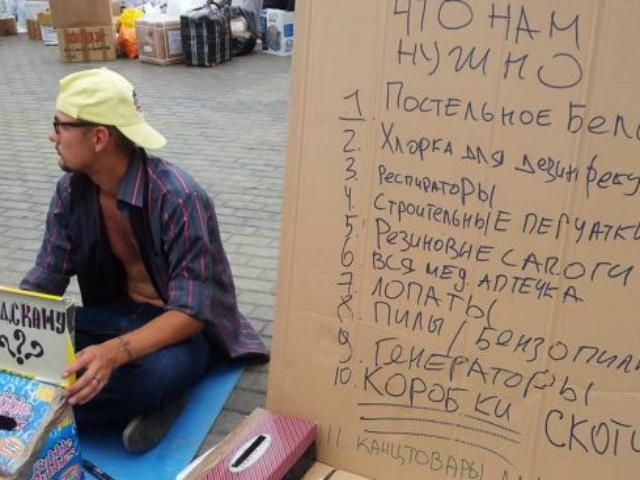 ЧТО НАМ
НУЖНО
1 Постельное Бель
2. Хлорка для дезинфек
3. Респираторы
4. Строительные перчатки
5. Резиновые сапоги
6 вся мед. аптечка
7. лопаты
8. пилы / бензопил
9. Генераторы
10. Коробки скотч
11 канцтовары
ДСКАЖУ
??